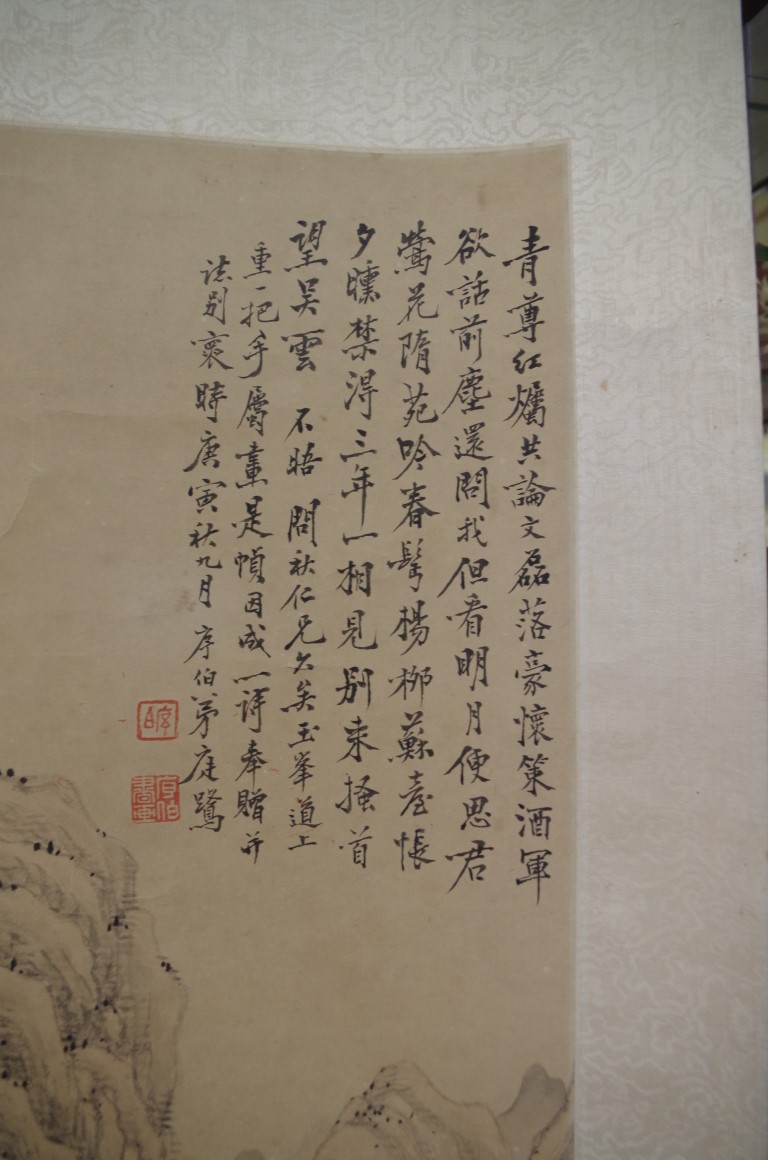 青尊紅燭共論文磊落豪懷策酒軍
欲話前塵還問我但看明月便思君
鶯花隋苑吟春髩楊柳蘇臺悵
夕曛禁得三年一相見別來搔首
望吴雲 不晤 問秋仁兄久矣玉峯道上
重一把手屬畫是幀因成一詩奉贈并
誌別衷時庚寅秋九月 序伯弟庭鷺
序伯
序伯書畫